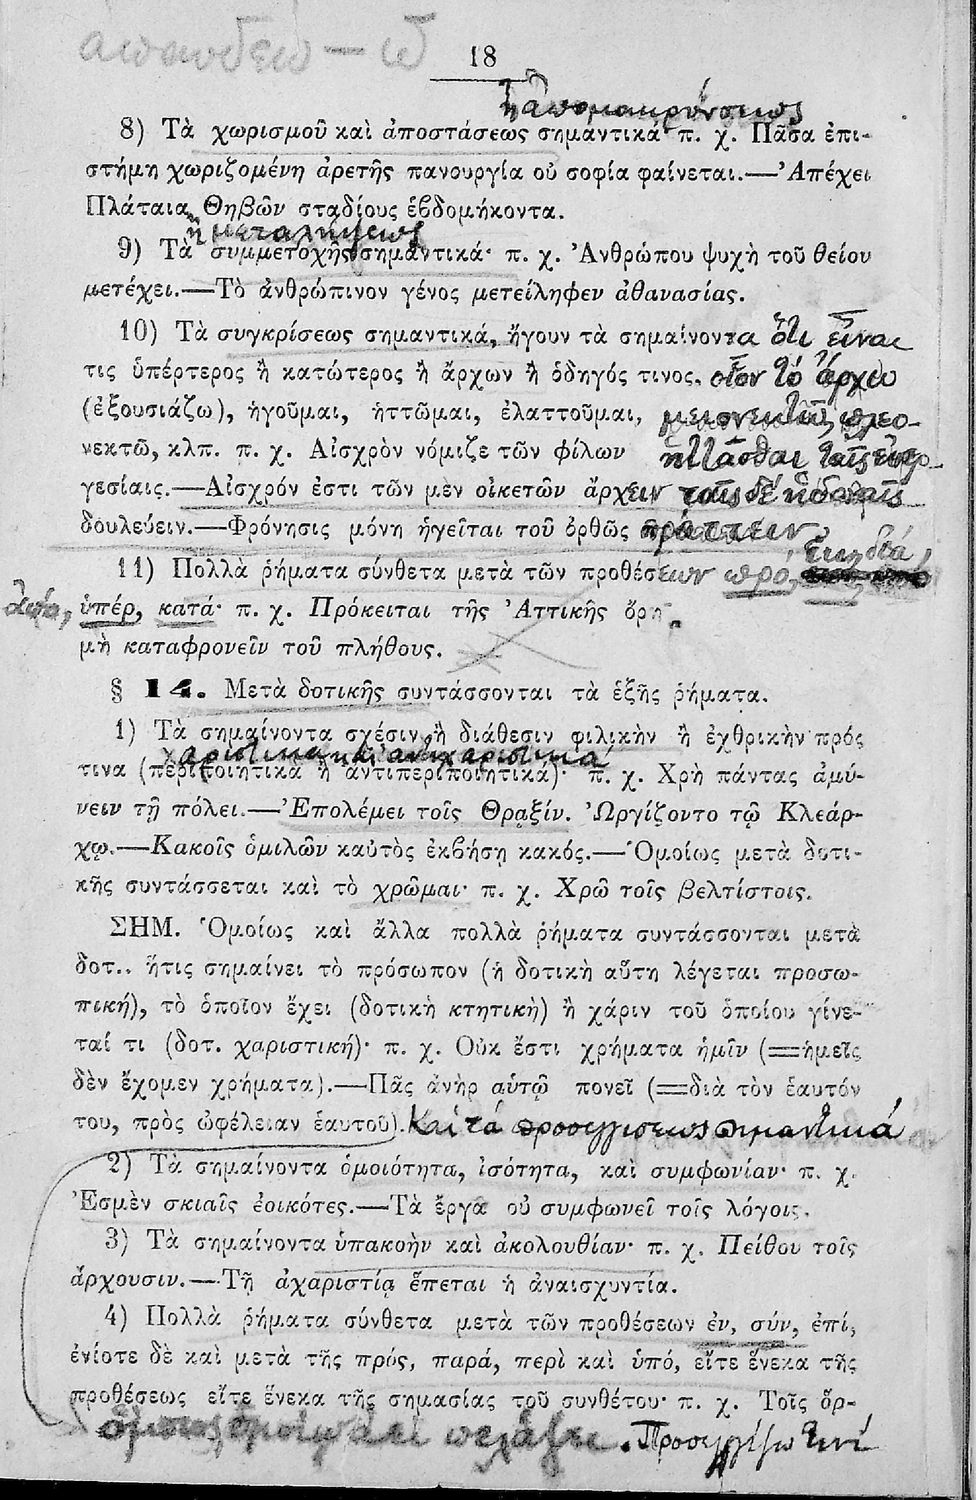 18
ἢ ἀπομακρύνσεως
8) Τὰ χωρισμοῦ καὶ ἀποστάσεως σημαντικά· π. χ. Πᾶσα ἐπι-
στήμη χωριζομένη ἀρετῆς πανουργία οὐ σοφία φαίνεται.—Ἀπέχει
Πλάταια Θηβῶν σταδίους ἑβδομήκοντα.
ἢ μεταλήψεως
9) Τὰ συμμετοχῆς σημαντικά· π. χ. Ἀνθρώπου ψυχὴ τοῦ θείου
μετέχει.—Τὸ ἀνθρώπινον γένος μετείληφεν ἀθανασίας.
10) Τὰ συγκρίσεως σημαντικά, ἤγουν τὰ σημαίνοντα ὅτι εἶναι
τις ὑπέρτερος ἢ κατώτερος ἢ ἄρχων ἢ ὁδηγός τινος. οἷον τὸ ἄρχω
(ἐξουσιάζω), ἡγοῦμαι, ἡττῶμαι, ἐλαττοῦμαι, μειονεκτῶ, πλεο-
νεκτῶ, κλπ. π. χ. Αἰσχρὸν νόμιζε τῶν φίλων ἡττᾶσθαι ταῖς εὐερ-
γεσίαις.—Αἰσχρόν ἐστι τῶν μὲν οἰκετῶν ἄρχειν ταῖς δὲ ἡδοναῖς
δουλεύειν.—Φρόνησις μόνη ἡγεῖται τοῦ ὀρθῶς πράττειν
11) Πολλὰ ῥήματα σύνθετα μετὰ τῶν προθέσεων πρό, ἐπὶ, διά
ὑπέρ, κατά· π. χ. Πρόκειται τῆς Ἀττικῆς ὄρη
μὴ καταφρονεῖν τοῦ πλήθους.
§ 14. Μετὰ δοτικῆς συντάσσονται τὰ ἑξῆς ῥήματα.
1) Τὰ σημαίνοντα σχέσιν ἢ διάθεσιν φιλικὴν ἢ ἐχθρικὴν πρός
χαριστικὰ καὶ ἀντιχαριστικά
τινα (περιποιητικὰ ἢ ἀντιπεριποιητικά)· π. χ. Χρὴ πάντας ἀμύ-
νειν τῇ πόλει.—Ἐπολέμει τοῖς Θρᾳξίν. Ὠργίζοντο τῷ Κλεάρ-
χῳ.—Κακοῖς ὁμιλῶν καὐτὸς ἐκβήσῃ κακός.—Ὁμοίως μετὰ δοτι-
κῆς συντάσσεται καὶ τὸ χρῶμαι· π. χ. Χρῶ τοῖς βελτίστοις.
ΣΗΜ. Ὁμοίως καὶ ἄλλα πολλὰ ῥήματα συντάσσονται μετὰ
δοτ.. ἥτις σημαίνει τὸ πρόσωπον (ἡ δοτικὴ αὕτη λέγεται προσω-
πική), τὸ ὁποῖον ἔχει (δοτικὴ κτητική) ἢ χάριν τοῦ ὁποίου γίνε-
ταί τι (δοτ. χαριστική)· π. χ. Οὐκ ἔστι χρήματα ἡμῖν (=ἡμεῖς
δὲν ἔχομεν χρήματα).—Πᾶς ἀνὴρ αὑτῷ πονεῖ (=διὰ τὸν ἑαυτόν
του, πρὸς ὠφέλειαν ἑαυτοῦ). Καὶ τὰ προσεγγίσεως σημαντικά
2) Τὰ σημαίνοντα ὁμοιότητα, ἰσότητα, καὶ συμφωνίαν· π. χ.
Ἐσμὲν σκιαῖς ἐοικότες.—Τὰ ἔργα οὐ συμφωνεῖ τοῖς λόγοις.
3) Τὰ σημαίνοντα ὑπακοὴν καὶ ἀκολουθίαν· π. χ. Πείθου τοῖς
ἄρχουσιν.—Τῇ ἀχαριστίᾳ ἕπεται ἡ ἀναισχυντία.
4) Πολλὰ ῥήματα σύνθετα μετὰ τῶν προθέσεων ἐν, σύν, ἐπί,
ἐνίοτε δὲ καὶ μετὰ τῆς πρός, παρά, περὶ καὶ ὑπό, εἴτε ἕνεκα τῆς
προθέσεως εἴτε ἕνεκα τῆς σημασίας τοῦ συνθέτου· π. χ. Τοῖς ὅρ-
ὅμοιος ὁμοίῳ ἀεὶ πελάζει. Προσεγγίζω τινί